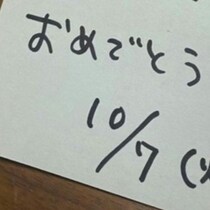 おめでとう
10/7 (